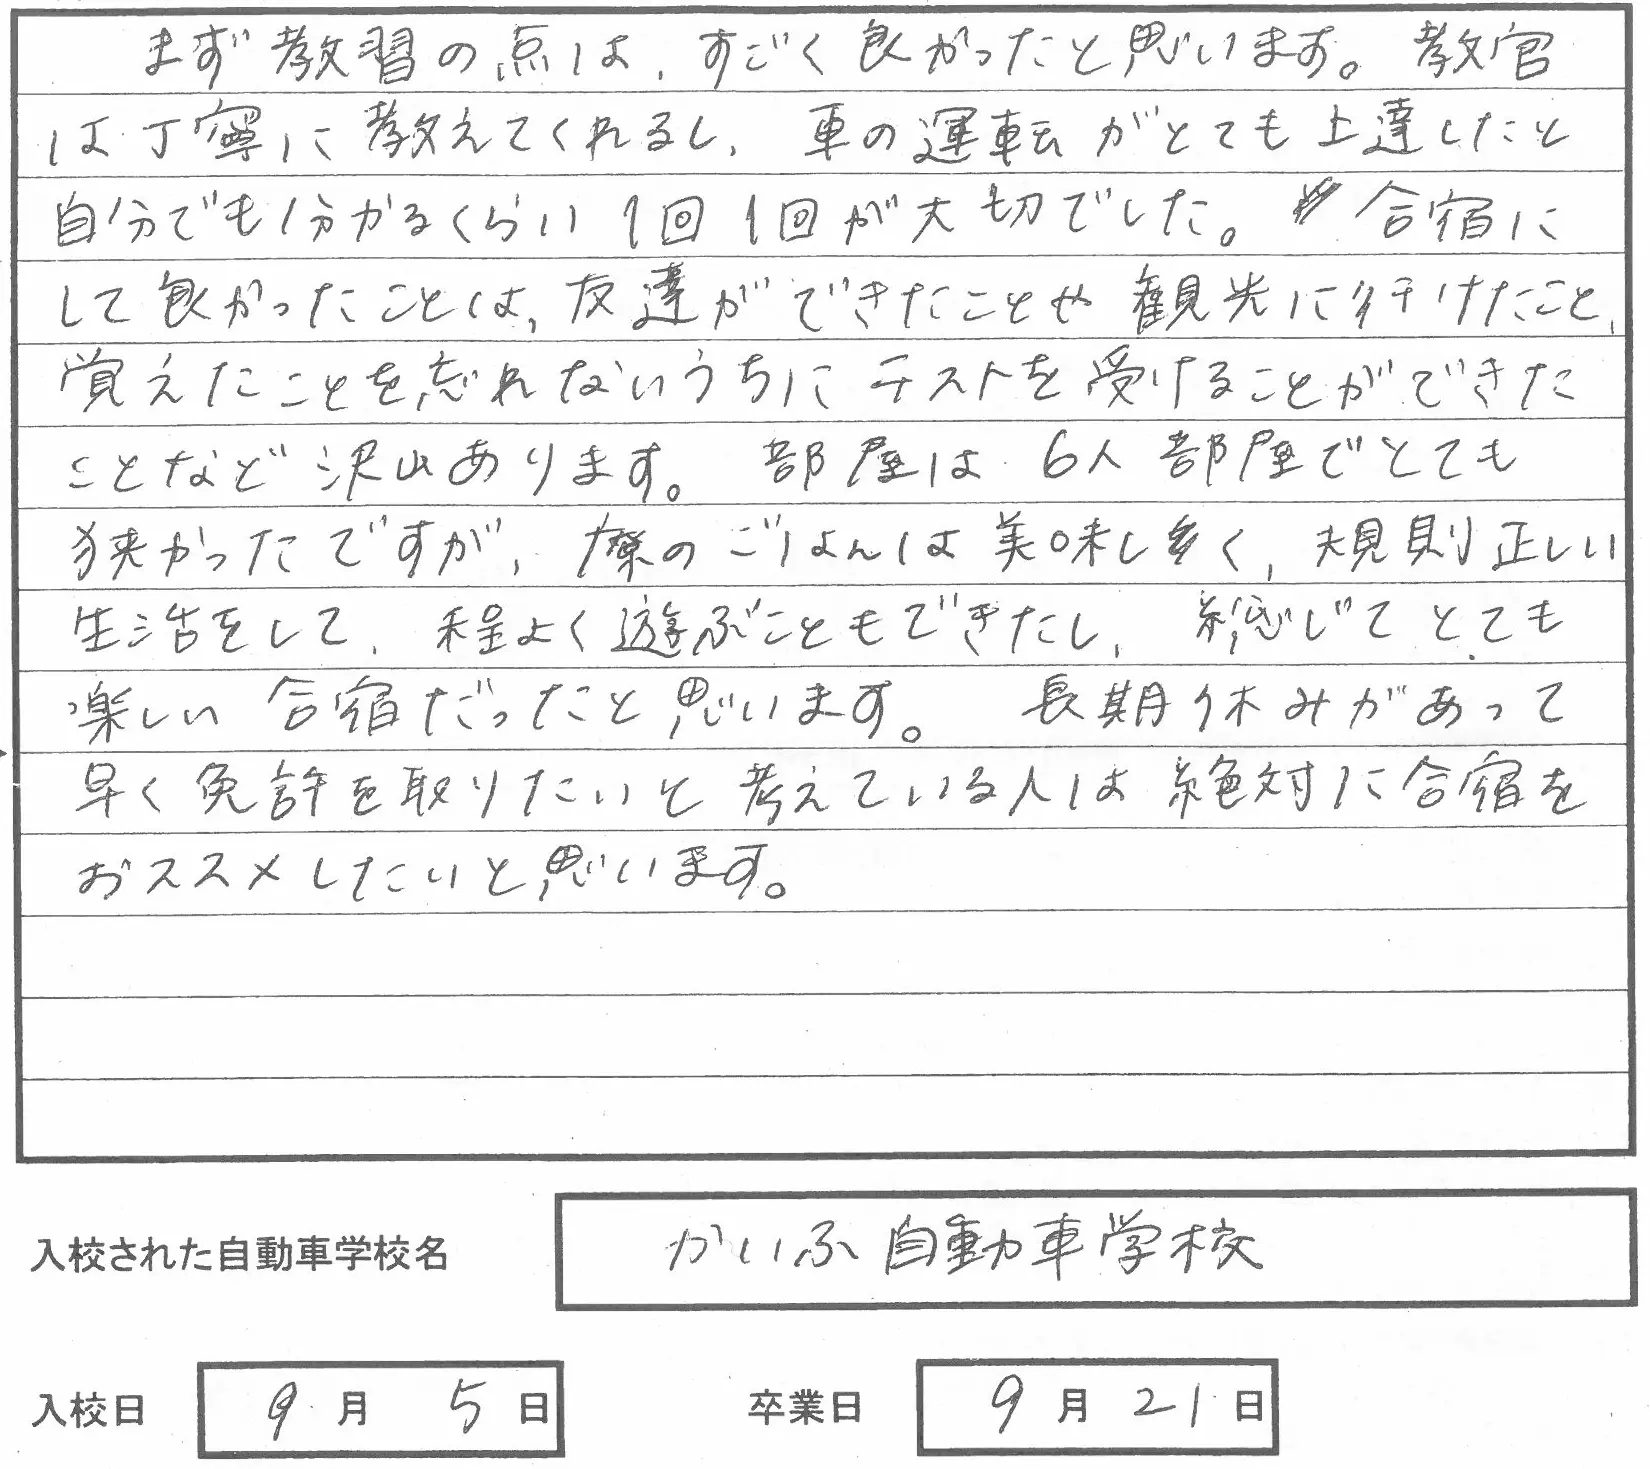 まず教習の点は、すごく良かったと思います。教官
は丁寧に教えてくれるし、車の運転がとても上達したと
自分でも分かるくらい1回1回が大切でした。合宿に
して良かったことは、友達ができたことや観光に行けたこと、
覚えたことを忘れないうちにテストを受けることができた
ことなど沢山あります。部屋は6人部屋でとても
狭かったですが、寮のごはんは美味しく、規則正しい
生活をして、程よく遊ぶこともできたし、総じてとても
楽しい合宿だったと思います。長期休みがあって
早く免許を取りたいと考えている人は絶対に合宿を
おススメしたいと思います。
入校された自動車学校名 かいふ自動車学校
入校日 9月5日 卒業日 9月21日